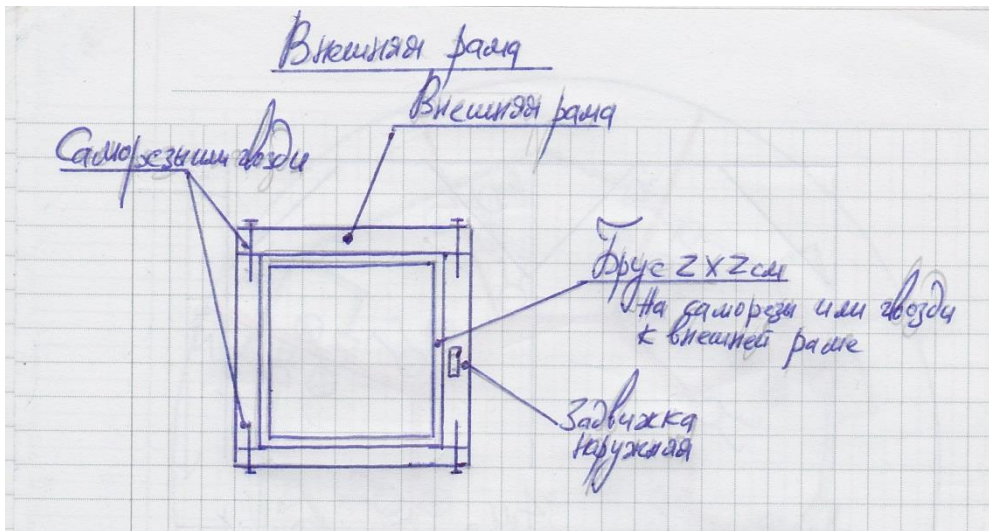 Внешняя рама
Внешняя рама
Саморезы или гвозди
Брус 2х2см
На саморезы или гвозди
к внешней раме
Задвижка
наружная